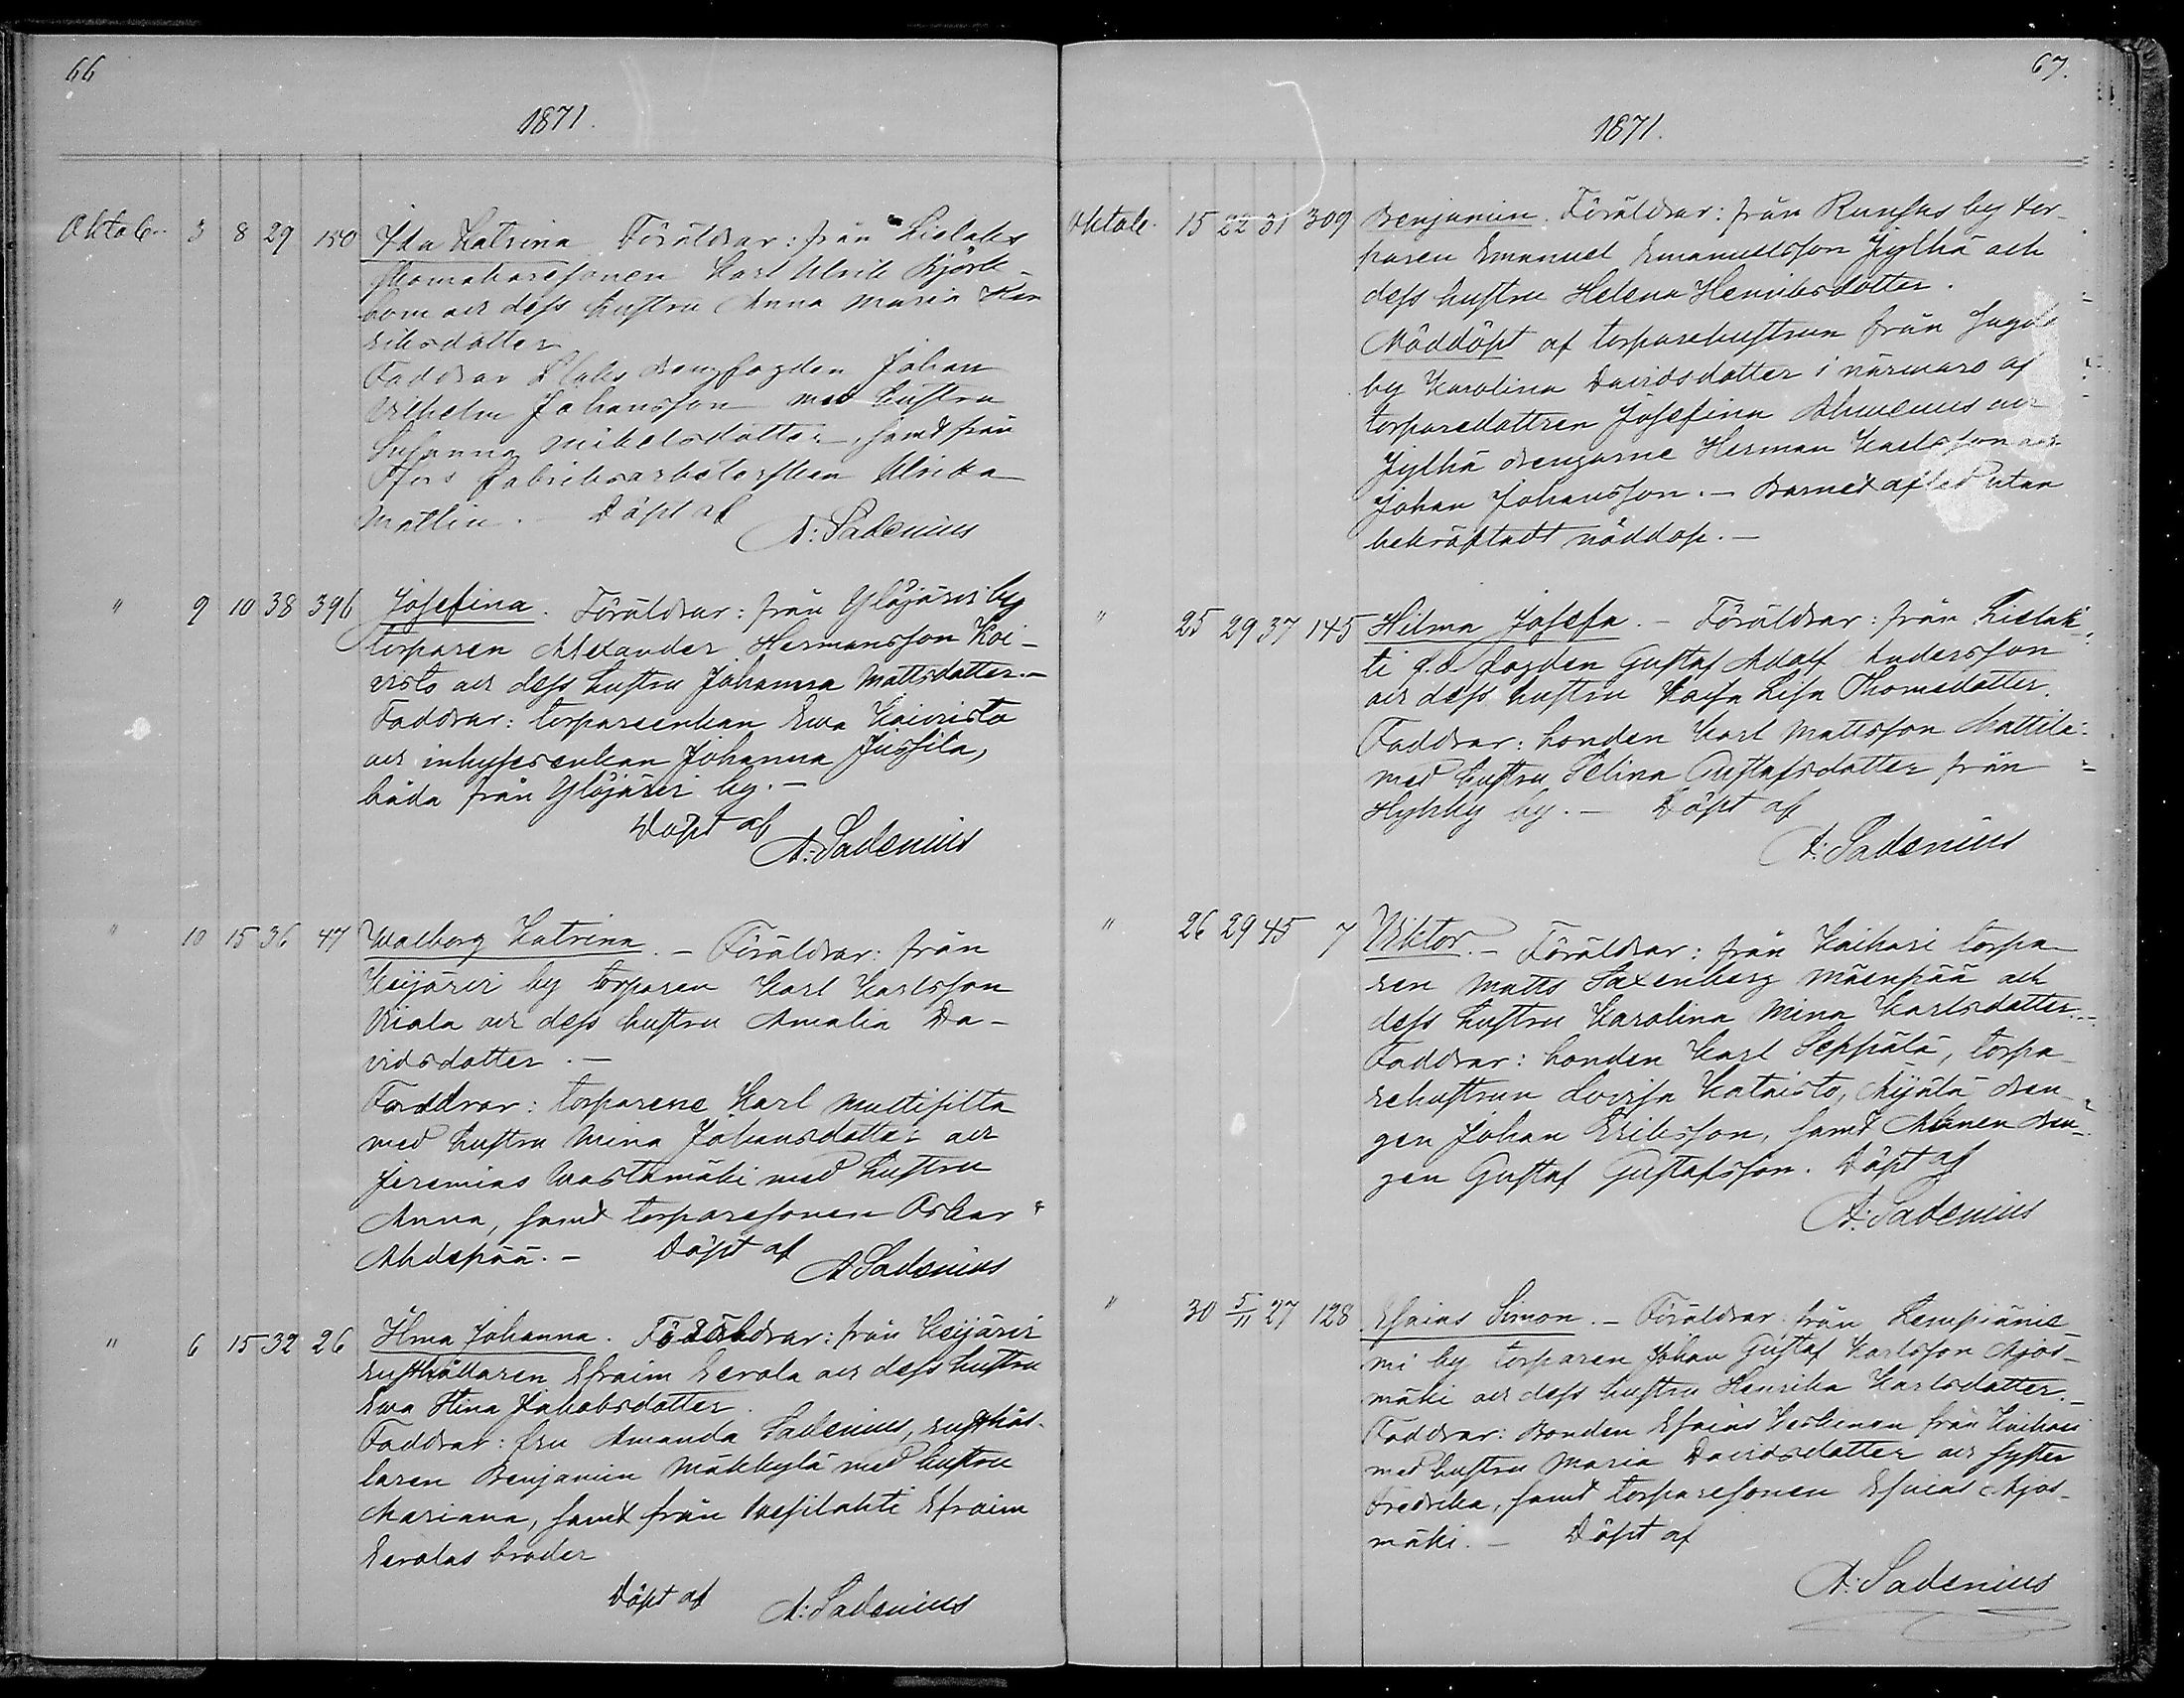 66
1871.
Oktob. 3 8 29 150 Ida Katrina Föräldrar: från Lielaks
skomakaresonen Karl Ulrik Björk-
bom och dess hustru Anna Maria
Eriksdotter
Faddrar drengfogden Johan
Vilhelm Johansson med hustru
Susanna Mikelsdotter, samt från
T:fors Fabriksarbeterskan Ulrika
Mattlin. Döpt af
A: Sadenius
" 9 10 38 396 Josefina. Föräldrar: från Ylöjärvi by
torparen Alexander Hermansson Koi-
visto och dess hustru Johanna Mattsdotter.-
Faddrar: torpareenkan Ewa Koivisto
och inhysesenkan Johanna Jussila,
båda från Ylöjärvi by.-
Döpt af
A: Sadenius
" 10 15 36 47 Walborg Katrina.- Föräldrar: från
Keijärvi by torparen Karl Karlsson
Viala och dess hustru Amalia Da-
vidsdotter.-
Faddrar: torparene Karl Mattipilta
med hustru Mina Johansdotter och
Jeremias Wastamäki med hustru
Anna, samt torparesonen Oskar
Ahdepää.- Döpt af
A Sadenius
" 6 15 32 26 Ilma Johanna. Föräldrar: från Keijärvi
rusthållaren Efraim Eerola och dess hustru
Ewa Stina Jakobsdotter.
Faddrar: fru Amanda Sadenius, rusthål-
laren Benjamin Mäkkylä med hustru
Mariana, samt från Wesilahti Efraim
Eerolas broder
Döpt af A: Sadenius
67.
1871.
Oktob. 15 22 31 309 Benjamin. Föräldrar: från Runsas by tor-
paren Emanuel Emanuelsson Jylhä och
dess hustru Helena Henriksdotter.
Nöddöpt af torparehustrun från
by Karolina Davidsdotter i närmaro af
torparedottren Josefina Ahlmenius och
Jylhä drengarne Herman Karlsson och
Johan Johansson.- Barnet afled utan
bekräftadt nöddop.-
" 25 29 37 145 Hilma Josefa.- Föräldrar: från Lielak-
ti f.d. fogden Gustaf Adolf Andersson
och dess hustru Kajsa Lisa Thomsdotter.
Faddrar: bonden Karl Mattsson Mattila
med hustru Selina Gustafsdotter från
Hyhky by.- Döpt af
A: Sadenius
" 26 29 45 7 Viktor.- Föräldrar: från Kaihari torpa-
ren Matts Saxenberg Mäenpää och
dess hustru Karolina Mina Karlsdotter.-
Faddrar: bonden Karl Seppälä, torpa-
rehustrun Lovisa Kataisto, Mijälä dren-
gen Johan Eriksson, samt dren-
gen Gustaf Gustafsson. Döpt af
A: Sadenius
" 30 5/11 27 128 Esaias Simon.- Föräldrar från Lempiänie-
mi by torparen Johan Gustaf Karlsson Ajos-
mäki och dess hustru Henrika Karlsdotter.-
Faddrar: Bonden Esaias Keskinen från Kaihari
med hustru Maria Davidsdotter och syster
Fredrika, samt torparesonen Esaias Ajos-
mäki.- Döpt af
A: Sadenius